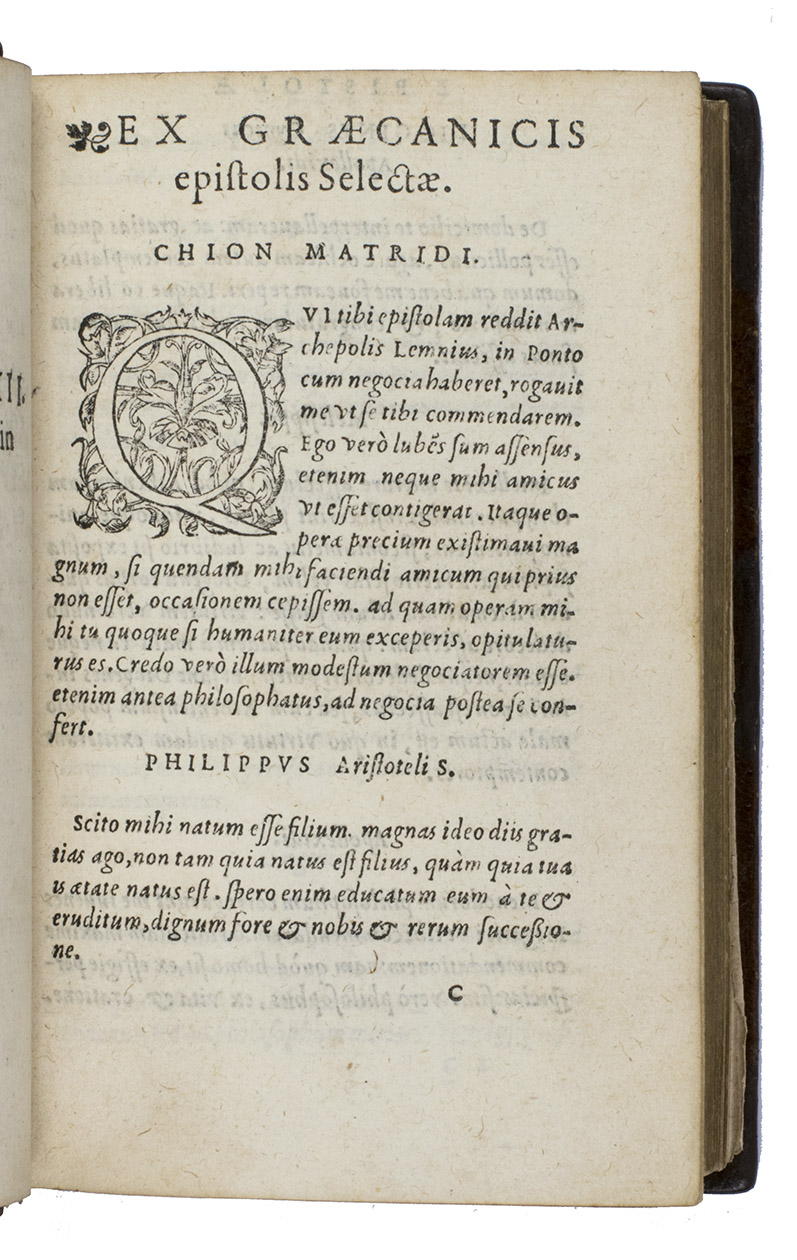 EX GRÆCANICIS
epiſtolis Selectæ.
CHION MATRIDI.
QVI tibi epiſtolam reddit Ar-
chepolis Lemnius, in Ponto
cum negocia haberet, rogauit
me vt ſe tibi commendarem.
Ego verò lubēs ſum aſſenſus,
etenim neque mihi amicus
vt eſſet contigerat. Itaque o-
peræ precium exiſtimaui ma
gnum, ſi quendam mihi faciendi amicum qui prius
non eſſet, occaſionem cepiſſem. ad quam operam mi-
hi tu quoque ſi humaniter eum exceperis, opitulatu-
rus es. Credo verò illum modeſtum negociatorem eſſe.
etenim antea philoſophatus, ad negocia poſtea ſe con-
fert.
PHILIPPVS Ariſtoteli S.
Scito mihi natum eſſe filium. magnas ideo diis gra-
tias ago, non tam quia natus eſt filius, quàm quia tua
is ætate natus eſt. ſpero enim educatum eum à te &
eruditum, dignum fore & nobis & rerum ſucceßio-
ne.
C
II.
in